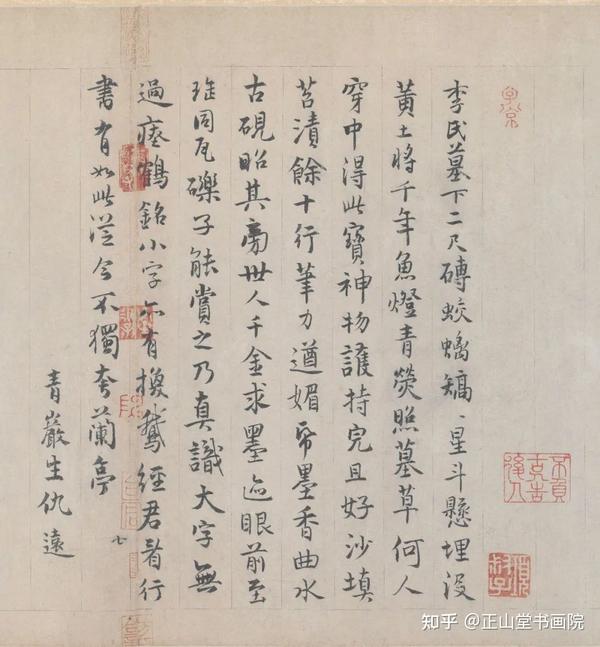 李氏墓下二尺磚蛟螭矯〻星斗懸埋沒
黄土將千年魚燈青熒照墓草何人
穿中得此寶神物護持完且好沙填
苔漬餘十行筆力遒媚帋墨香曲水
古硯昭其旁世人千金求墨迹眼前至
珤同瓦礫子能賞之乃真識大字無
過瘞鶴銘小字亦有換鵝經君看行
書有如此從今不獨夸蘭亭
七
青巖生仇遠
知乎 @正山堂书画院